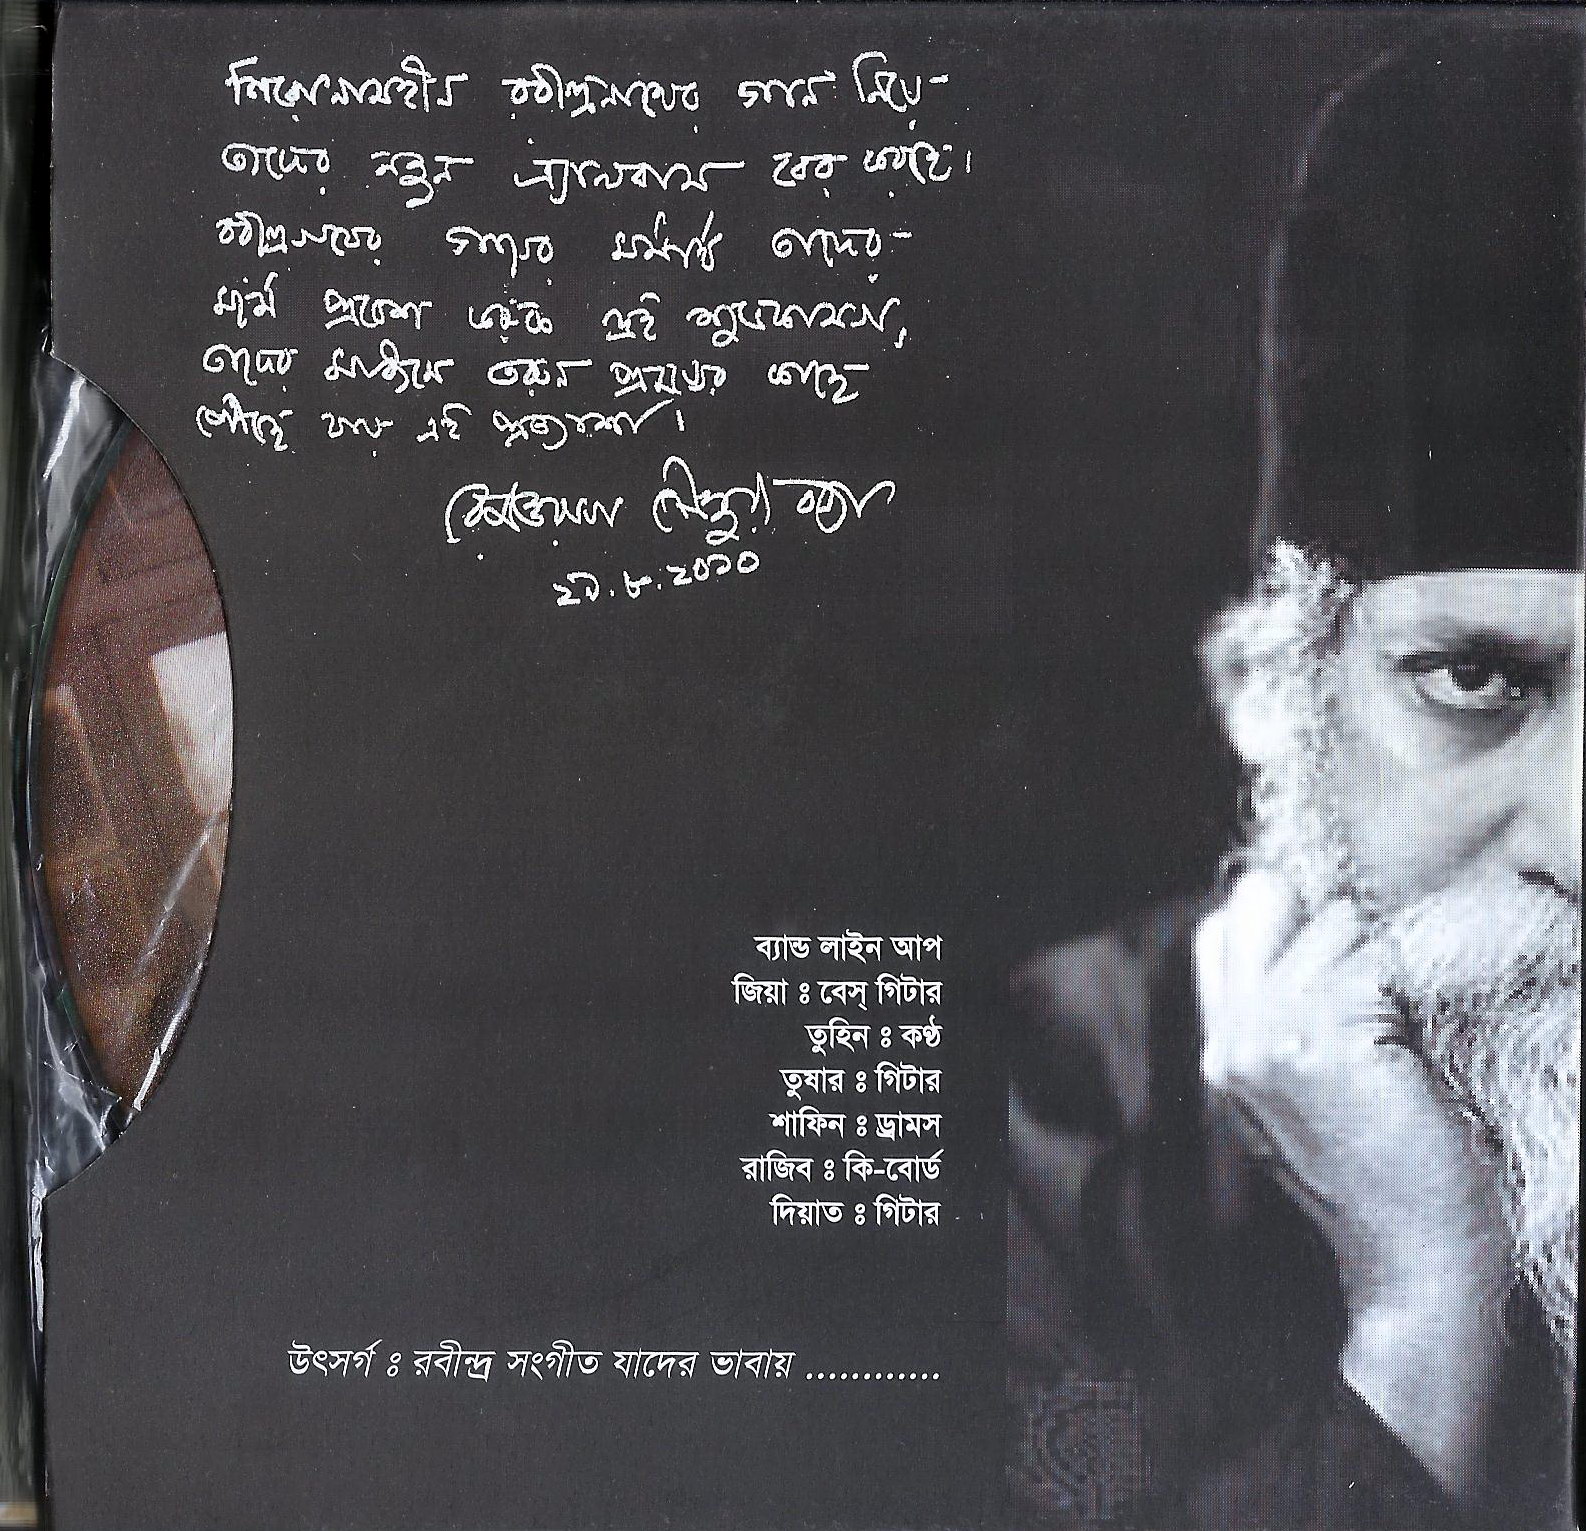 শিরোনামহীন রবীন্দ্রনাথের গান নিয়ে-
তাদের নতুন এ্যালবাম বের করছে।
রবীন্দ্রনাথের গানের মর্মার্থ তাদের-
মর্মে প্রবেশ করুক এই শুভেচ্ছা
তাদের মাধ্যমে তরুন প্রজন্মের কাছে
পৌঁছে যাক এই প্রত্যাশা।
রেজওয়ানা চৌধুরী বন্যা
২৯.৮.২০১০
ব্যান্ড লাইন আপ
জিয়া ঃ বেস্ গিটার
তুহিন ঃ কণ্ঠ
তুষার ঃ গিটার
শাফিন ঃ ড্রামস
রাজিব ঃ কি-বোর্ড
দিয়াত ঃ গিটার
উৎসর্গ ঃ রবীন্দ্র সংগীত যাদের ভাবায় ............